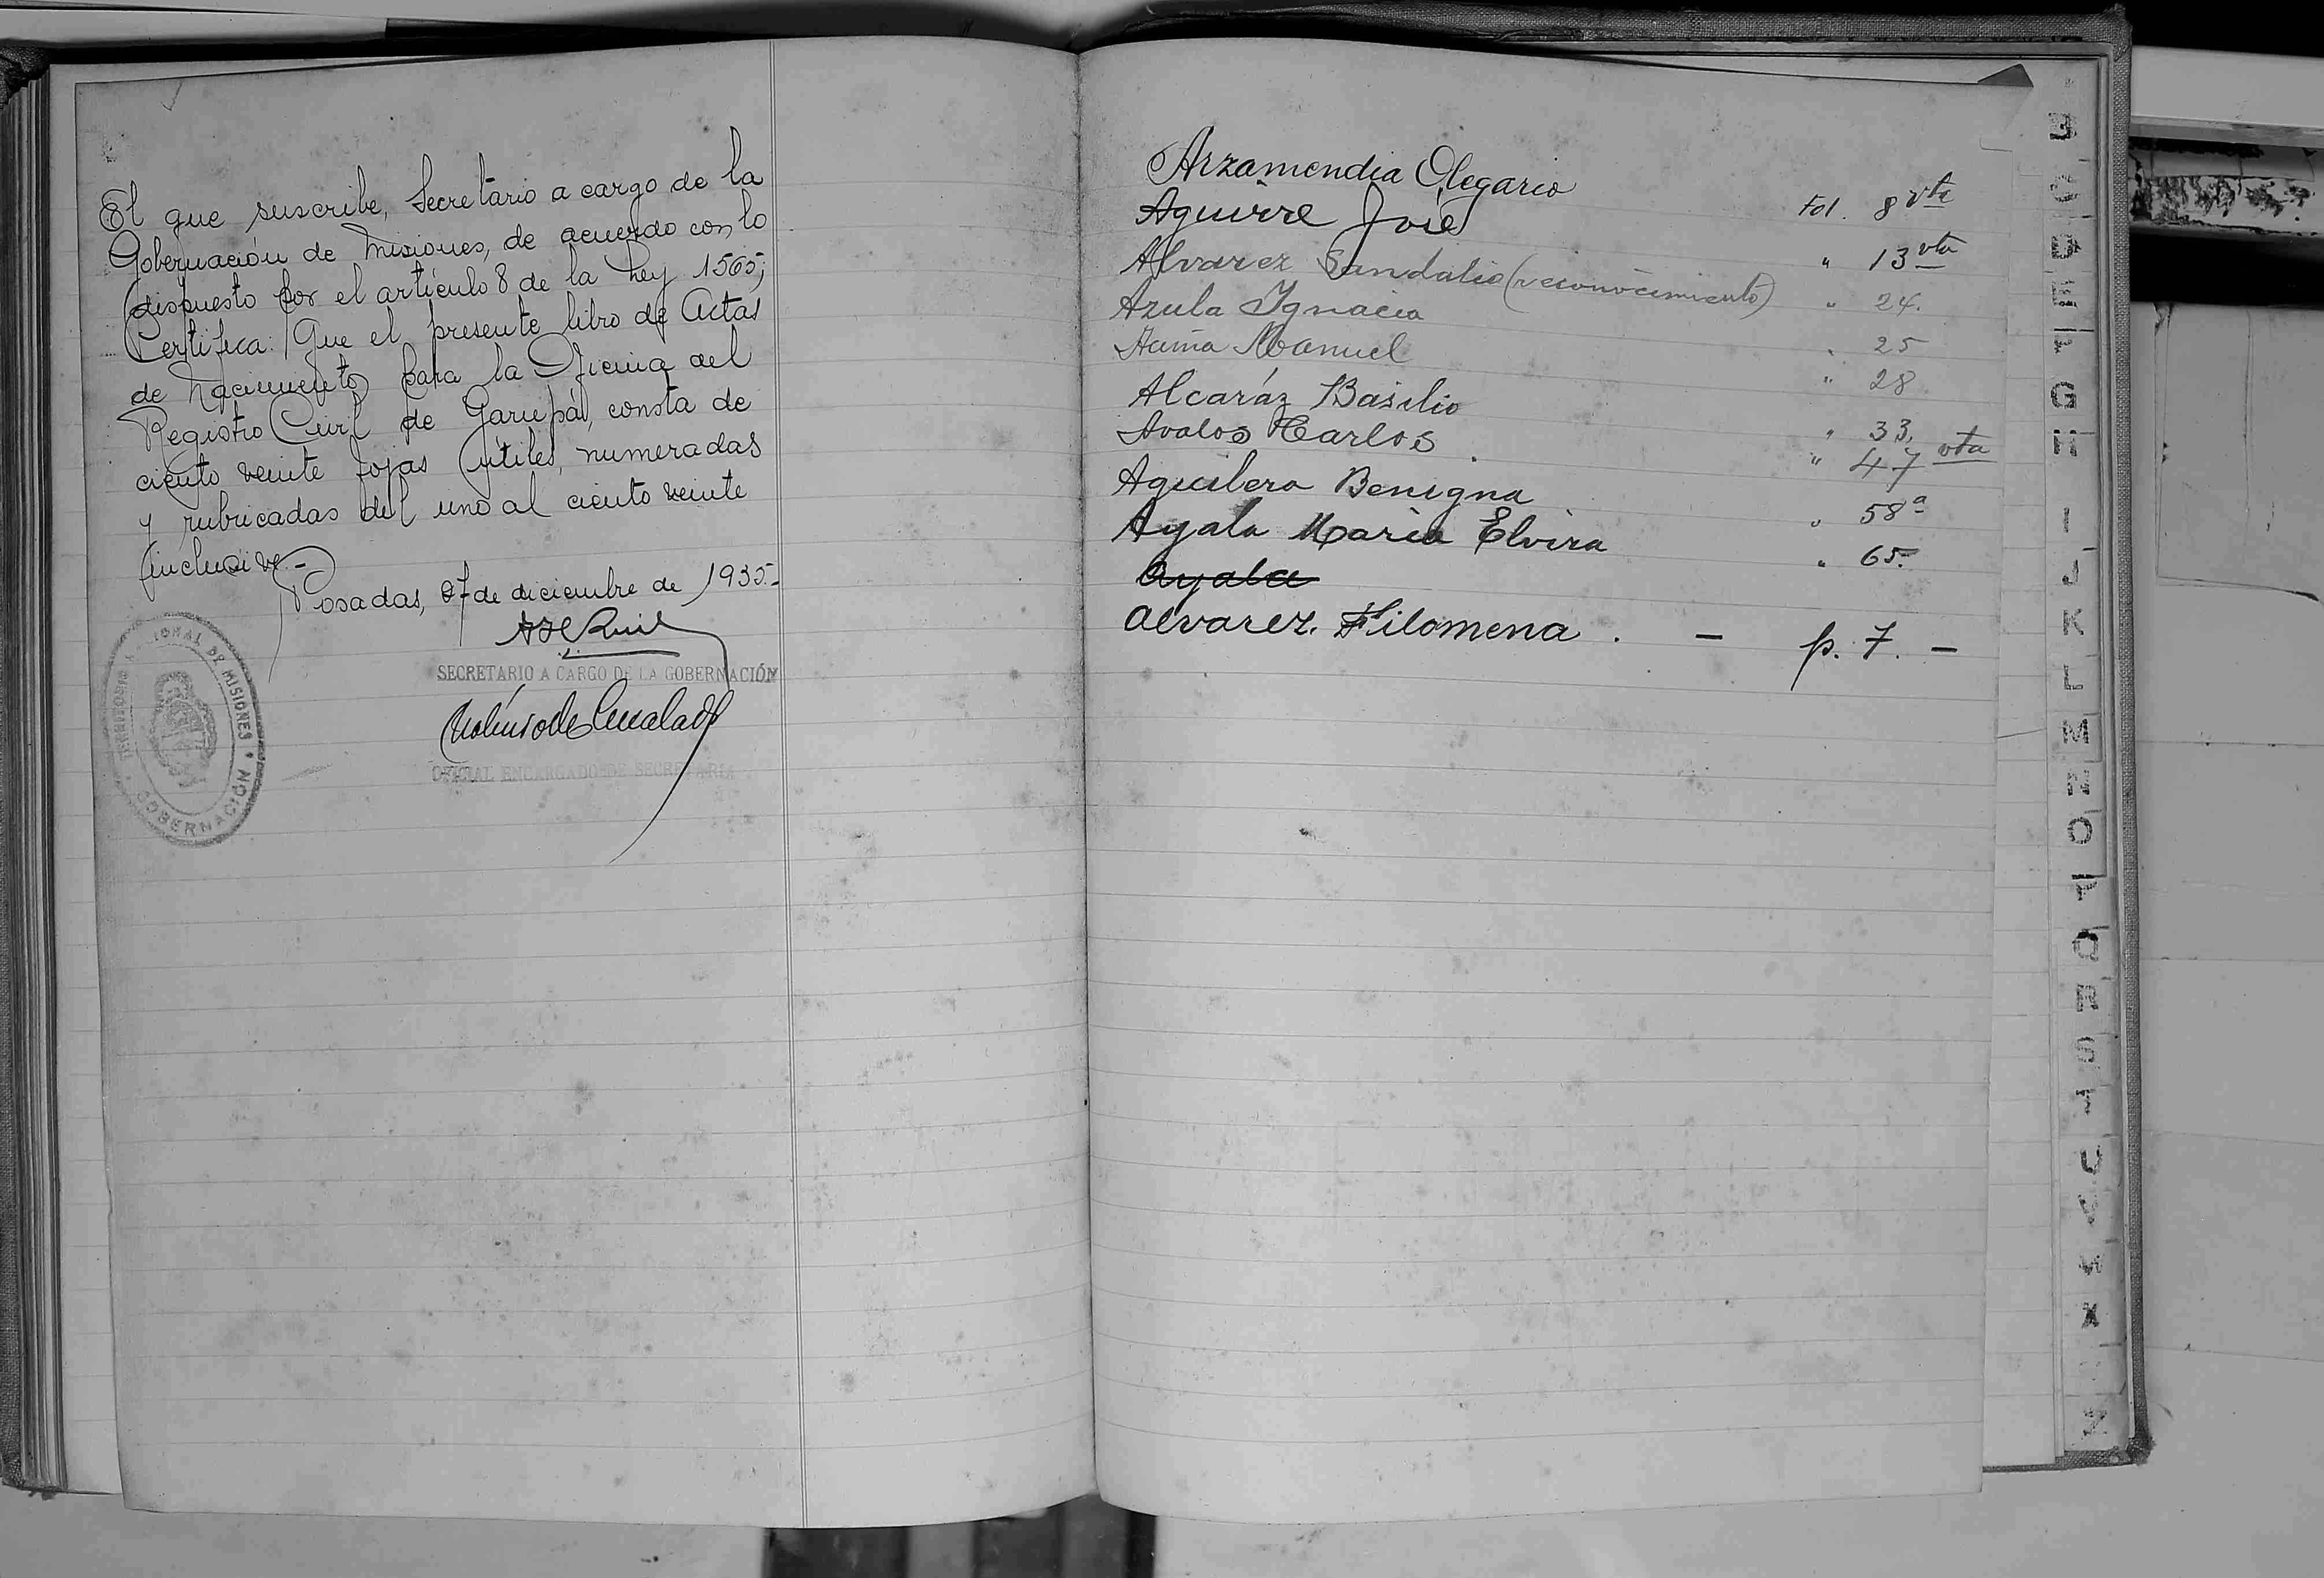 El que suscribe, Secretario a cargo de la
Gobernación de Misiones, de acuerdo con lo
dispuesto por el artículo 8 de la Ley 1565;
Certifica: Que el presente libro de Actas
de Nacimiento para la Oficina del
Registro Civil de Garupá, consta de
ciento veinte fojas útiles, numeradas
y rubricadas del uno al ciento veinte
inclusive.-
Posadas, 27 de diciembre de 1935.-
SECRETARIO A CARGO DE LA GOBERNACIÓN
OFICIAL ENCARGADO DE SECRETARIA
TERRITORIO NACIONAL DE MISIONES
GOBERNACIÓN
Arzamendia Olegario Fol. 8 vta
Aguirre José " 13 vta
Alvarez Sandalio (reconocimiento) " 24.
Azula Ignacia " 25
Manuel " 28
Alcaráz Basilio " 33,
Avalos Carlos. " 47 vta
Aguilera Benigna " 58a
Ayala María Elvira " 65.
Ayala
Alvarez. Filomena . — p. 7. —
D
E
F
G
H
I
J
K
L
M
N
O
P
Q
R
S
T
U
V
W
X
Z